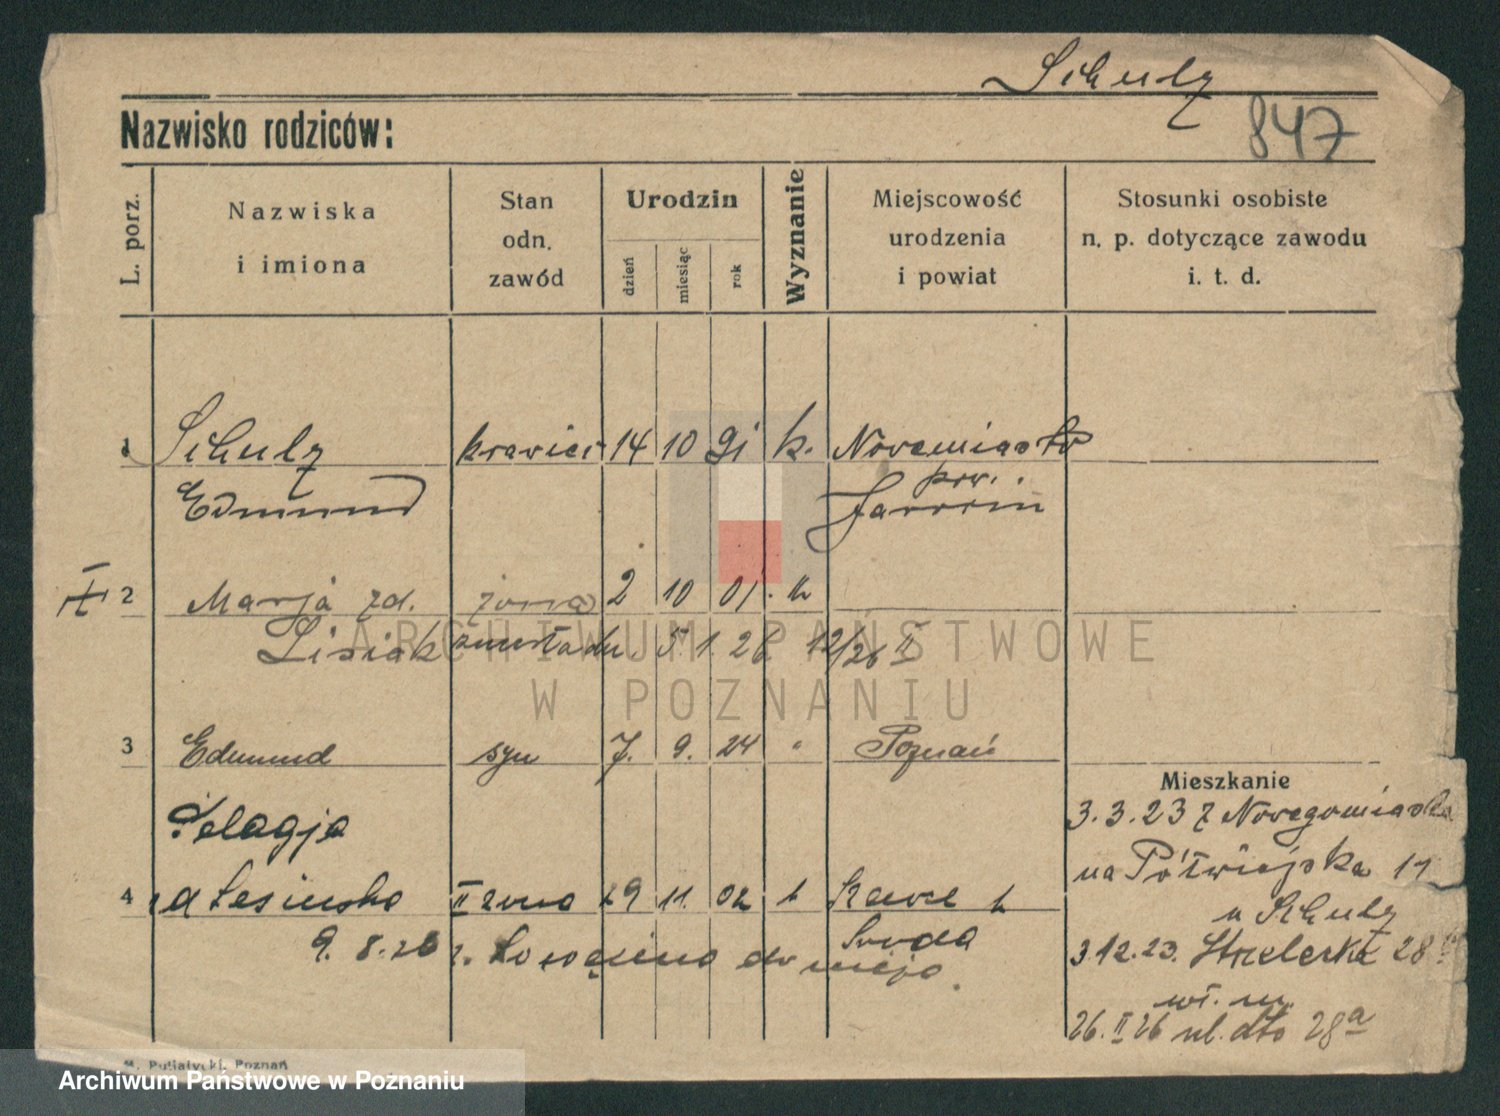 Schulz
847
Nazwisko rodziców:
L. porz.
Nazwiska
i imiona
Stan
odn.
zawód
Urodzin
dzień
miesiąc
rok
Wyznanie
Miejscowość
urodzenia
i powiat
Stosunki osobiste
n. p. dotyczące zawodu
i. t. d.
1 Schulz krawiec 14 10 91 k. Novemiasto
Edmund pow. Jarocin
2 Marja zd. żona 2 10 01 "
Lisiak zmarła dn. 5. 1. 26 12/26 II
3 Edmund syn 7. 9. 24 " Poznań
Pelagja
4 Lesińska II żona 29 11. 02 k
9. 8. 26 z. Środa
Mieszkanie
3. 3. 23 z Novegomiasta
na Półwiejska 11
u Schulz
3.12.23. Strzelecka 28
wł. m.
26. II 26 ul. dto 28a
M. Putiatycki, Poznań
ARCHIWUM PAŃSTWOWE
W POZNANIU
Archiwum Państwowe w Poznaniu